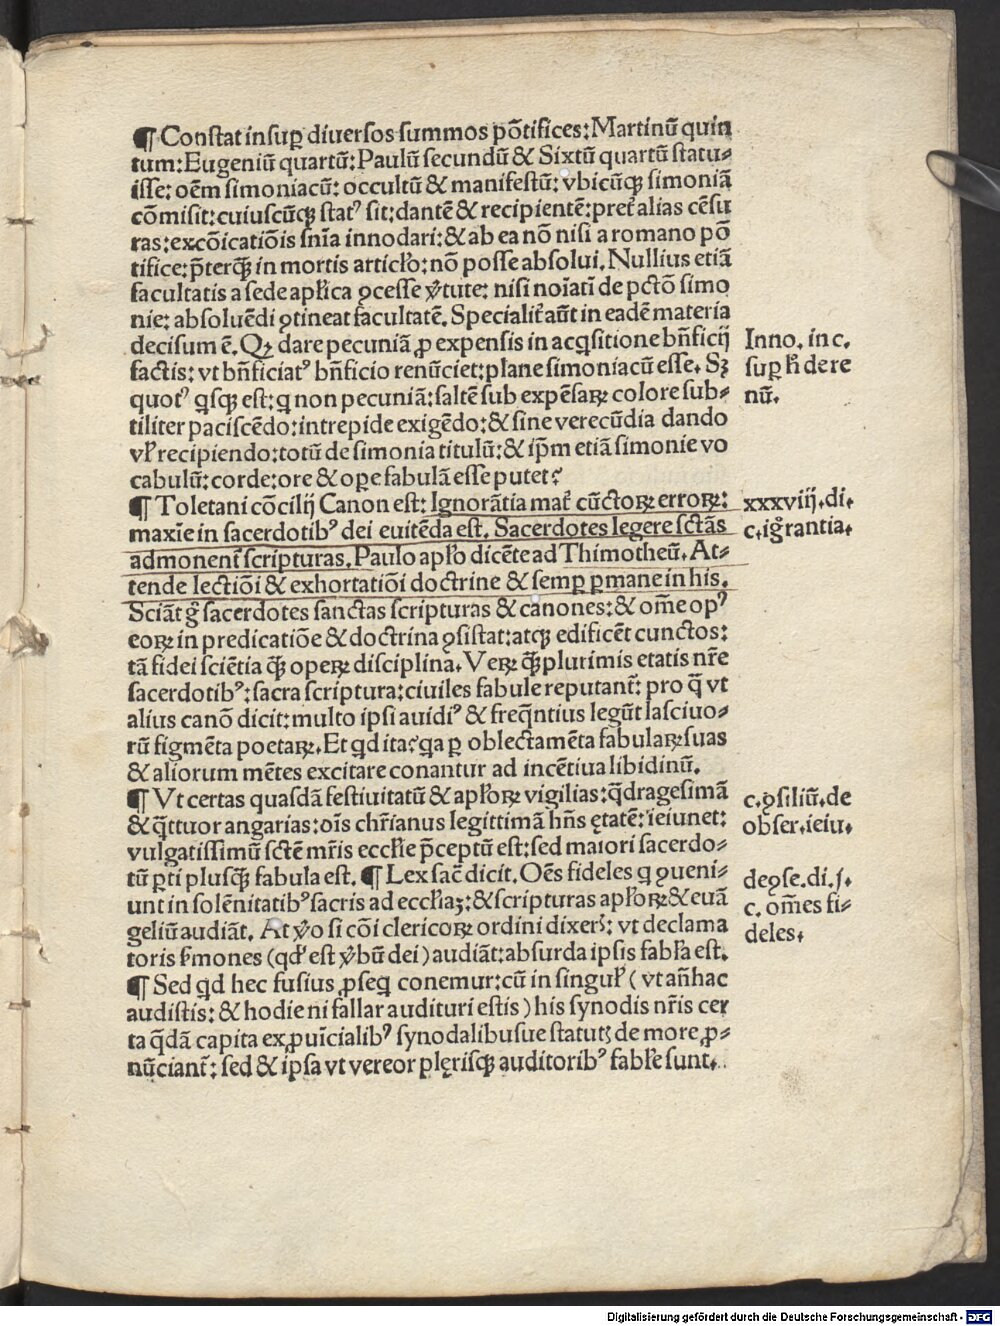 ¶ Constat insuꝑ diuersos summos põtifices: Martinũ quin
tum: Eugeniũ quartũ: Paulũ secundũ & Sixtũ quartũ statu⸗
isse: oẽm simoniacũ: occultũ & manifestũ: vbicũqꝫ simoniã
cõmisit: cuiuscũqꝫ statꝰ sit: dantẽ & recipientẽ: pret̃ alias cẽsu
ras: excõicatiõis sñia innodari: & ab ea nõ nisi a romano põ
tifice: p̃terqꝫ̃ in mortis articl̃o: nõ posse absolui. Nullius etiã
facultatis a sede apl̃ica ꝯcesse ṽtute: nisi noĩati de pctõ simo
nie: absoluẽdi ꝯtineat facultatẽ. Specialit̃ aũt in eadẽ materia
decisum ẽ. Qꝫ dare pecuniã ꝓ expensis in acq̃sitione bñficij
factis: vt bñficiatꝰ bñficio renũciet: plane simoniacũ esse. Sꝫ
quotꝰ qsqꝫ est: q non pecuniã: saltẽ sub expẽsaꝝ colore sub⸗
tiliter paciscẽdo: intrepide exigẽdo: & sine verecũdia dando
vl̃ recipiendo: totũ de simonia titulũ: & ip̃m etiã simonie vo
cabulũ: corde: ore & oꝑe fabulã esse putet?
Inno. in c.
suꝑ h̃ de re
nũ.
¶ Toletani cõcilij Canon est: Ignorãtia mat̃ cũctoꝝ erroꝝ:
maxĩe in sacerdotibꝰ dei euitẽda est. Sacerdotes legere sctãs
admonent̃ scripturas. Paulo apl̃o dicẽte ad Thimotheũ. At⸗
tende lectiõi & exhortatiõi doctrine & semꝑ ꝑmane in his.
Sciãt g̃ sacerdotes sanctas scripturas & canones: & om̃e opꝰ
eoꝝ in predicatiõe & doctrina ꝯsistat: atqꝫ edificẽt cunctos:
tã fidei sciẽtia qꝫ̃ opeꝝ disciplina. Veꝝ qꝫ̃ plurimis etatis nr̃e
sacerdotibꝰ: sacra scriptura: ciuiles fabule reputant̃: pro q̃ vt
alius canõ dicit: multo ipsi auidiꝰ & freq̃ntius legũt lasciuo⸗
rũ figmẽta poetaꝝ. Et qd ita? qa ꝑ oblectamẽta fabulaꝝ suas
& aliorum mẽtes excitare conantur ad incẽtiua libidinũ.
xxxviij. di.
c. ig̃rantia.
¶ Vt certas quasdã festiuitatũ & apl̃oꝝ vigilias: q̃dragesimã
& q̃ttuor angarias: oĩs chr̃ianus legittimã hñs ętatẽ: ieiunet:
vulgatissimũ sctẽ mr̃is eccl̃ie p̃ceptũ est: sed maiori sacerdo⸗
tũ ꝑti plusqꝫ̃ fabula est. ¶ Lex sac̃ dicit. Oẽs fideles q ꝯueni⸗
unt in solẽnitatibꝰ sacris ad eccl̃iaꝫ: & scripturas apl̃oꝝ & euã
geliũ audiãt. At ṽo si cõi clericoꝝ ordini dixerꝭ: vt declama
toris s̃mones (qd̃ est ṽbũ dei) audiãt: absurda ipsis fabl̃a est.
c. ꝯsiliũ. de
obser. ieiu.
de ꝯse. di. j.
c. om̃es fi⸗
deles.
¶ Sed qd hec fusius ꝓseq conemur: cũ in singul̃ (vt añhac
audistis: & hodie ni fallar audituri estis) his synodis nr̃is cer
ta q̃dã capita ex ꝓuĩcialibꝰ synodalibusue statutꝭ de more ꝓ⸗
nũciant̃: sed & ipsa vt vereor plęrisqꝫ auditoribꝰ fabl̃e sunt.
Digitalisierung gefördert durch die Deutsche Forschungsgemeinschaft - DFG